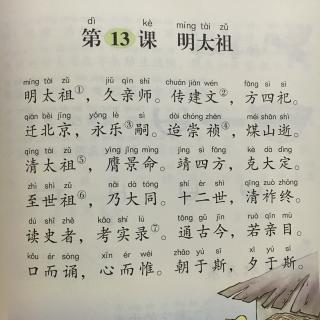 dì kè míng tài zǔ
第13课 明太祖
míng tài zǔ jiǔ qīn shī chuán jiàn wén fāng sì sì
明太祖①，久亲师。传建文②，方四祀。
qiān běi jīng yǒng lè sì dài chóng zhēn méi shān shì
迁北京，永乐③嗣。迨崇祯④，煤山逝。
qīng tài zǔ yīng jǐng mìng jìng sì fāng kè dà dìng
清太祖⑤，膺景命。靖四方，克大定。
zhì shì zǔ nǎi dà tóng shí èr shì qīng zuò zhōng
至世祖⑥，乃大同。十二世，清祚终。
dú shǐ zhě kǎo shí lù tōng gǔ jīn ruò qīn mù
读史者，考实录⑦。通古今，若亲目。
kǒu ér sòng xīn ér wéi zhāo yú sī xī yú sī
口而诵，心而惟。朝于斯，夕于斯。